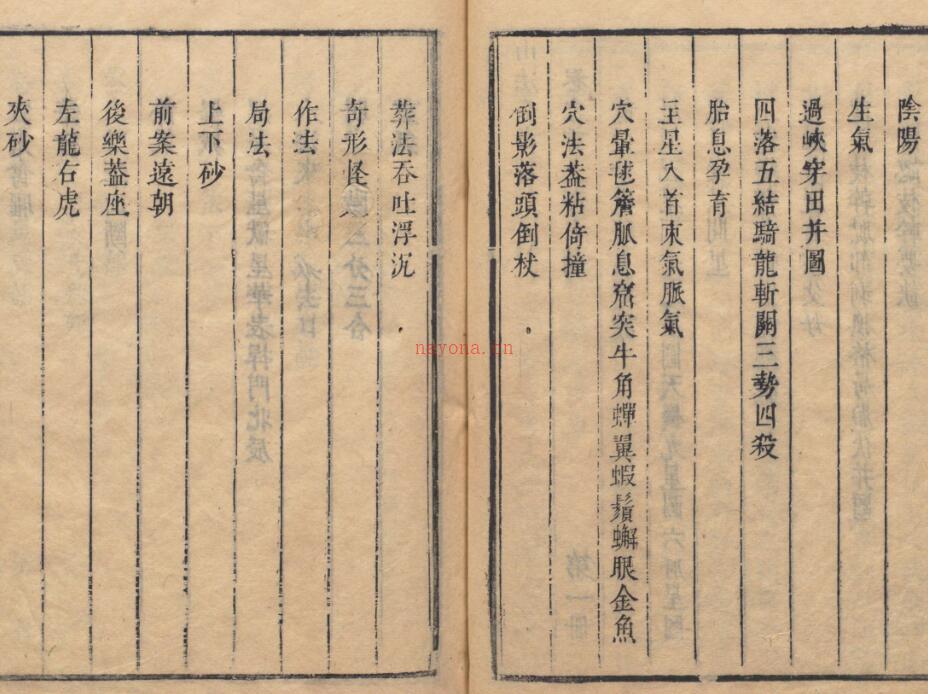 陰陽
生氣
過峽穿田并圖
四落五結騎龍斬關三勢四殺
胎息孕育
主星入首束氣脈氣
穴暈毬簷脈息窟突牛角蟬翼蝦鬚蠏眼金魚
穴法蓋粘倚撞
倒影落頭倒杖
葬法吞吐浮沉
奇形怪
作法
局法
上下砂
前案遠朝
後樂蓋座
左龍右虎
夾砂
nayona.cn